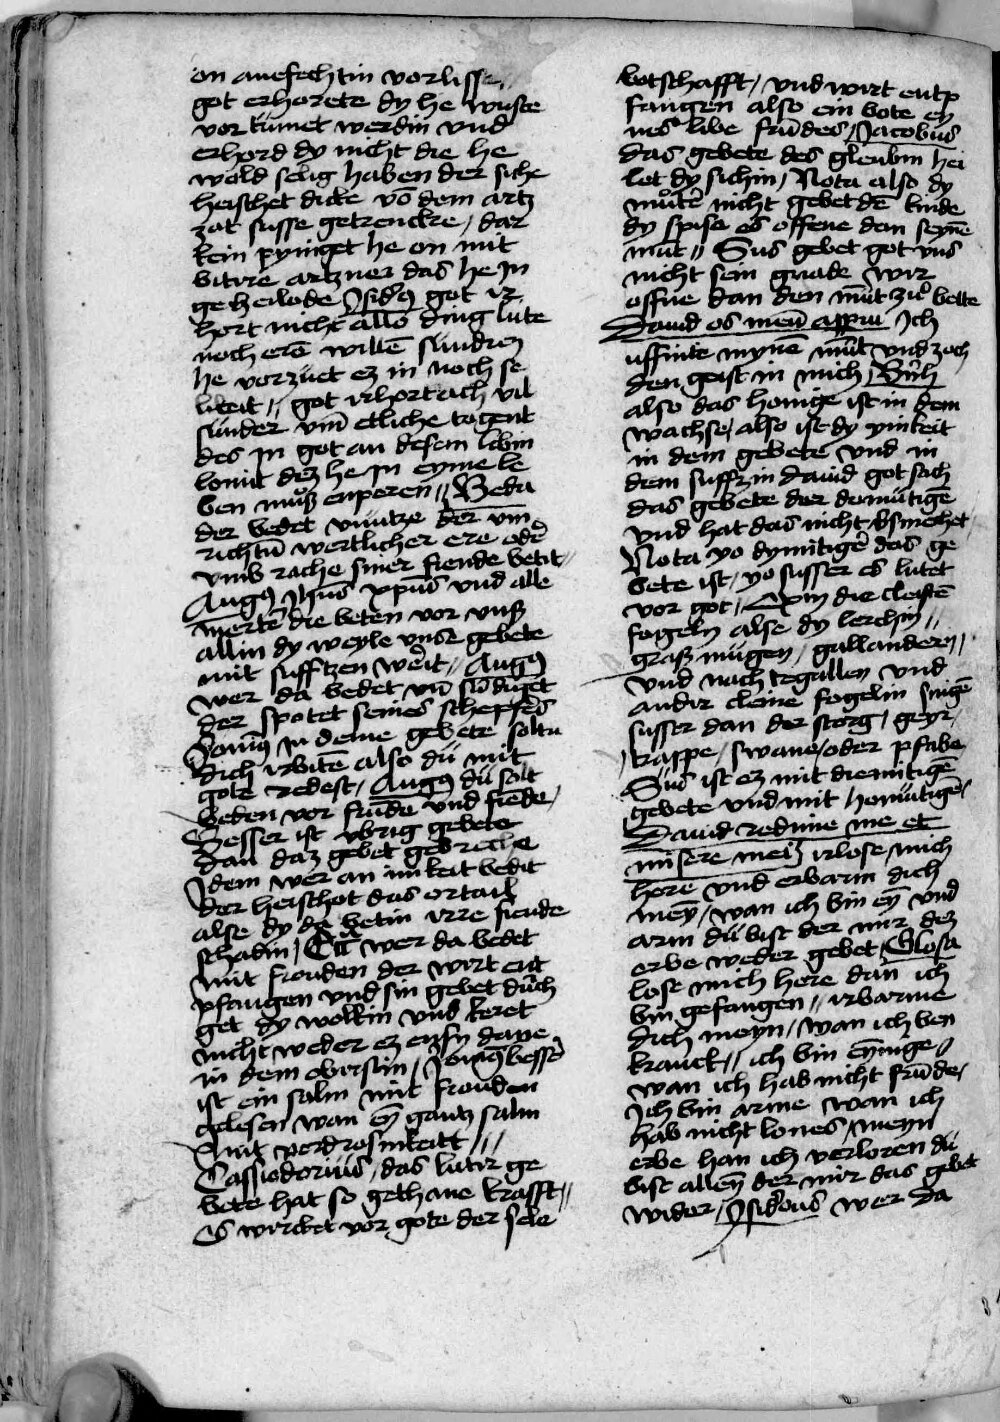 on anefechtin vorlisse
got erhorete dy he wuste
vor tumet werdin vnd
erhord dy nicht die he
wold selig haben der siche
heischet dicke võ dem artz
zat susse getrencke / dar
kein pyniget he on mit
bittre artznei das he In
geheilode Jsider9 got ir
hort nicht allis ding lute
noch erẽ willẽ sundren
he vorzuet ez in noch se
likeit // got irhort ouch vil
sunder vm̃ etliche togent
des In got an desem lebin
lonit dez he In eyme le
ben muß enperen // Beda
der bedet vnutze der vm̃
richtũ wertlicher ere oder
vmb rache siner fiende betit //
Aug9 Jhũs xpũs vnd alle
merterẽ die beten vor vnß
allin dy weyle vnse gebete
mit sufftzen werit // Aug9
wer da bedet vñ sũdiget
der spotet seines schepfers
Jeroni9 In deme gebete soltu
dich irbitẽ also dü mit
gote redest / Aug9 dü solt
beden vor frũde vnd fiẽde /
Besser ist vbrig gebete
dan daz gebet gebreche
Idem wer an innkeit bedit
der heischet das ortail
alse dy da betin irre fiende
schadin / wer da bedet
mit frouden der wirt ent
pfangen vnd sin gebet durch
get dy wolkin vnd keret
nicht weder ez enzsy dane
in dem obirstin / Jeroni9 besser
ist ein salm mit frouden
gelesen wan eyn gantz salm
mit verdrosinkeitt //
Cassiodorius / das lutir ge
bete hat so gethane krafft //
Es wircket vor gote der sele
botschafft / vnd wirt entp
fangen also ein bote ey
nes libe frũdes / Jacobus
das gebete des gleubin hei
let dy sichin / Nota also dy
muter nicht gebet dẽ kinde
dy spise es offene den seynẽ
mut // Sus gebet got vns
nicht sein gnade wir
offne dan den mũt zur bette
Dauid os meũ apperui Ich
uffinte mynẽ mũt vnd zoch
den geist in mich / Bern̄h
also das honige ist in dem
wachse / also ist dy ynikeit
in dem gebete vnd in
dem suffzin dauid got sach
das gebete der demutigẽ
vnd hat das nicht vorsmehet
Nota yo dymitiger das ge
bete ist / yo susser es lutet
vor got / die cleistẽ
fogeln alse dy lerchin //
graß mugen / gallanderen //
vnd nach tegallen vnd
andir cleine fogelin singẽ
susser dan der storg / geyr /
traspe / swane / oder pfabe
Sus ist ez mit diemitigẽ
gebete vnd mit homutigẽ /
Dauid redime me et
misere mei irlose mich
here vnd erbarm dich
meyn / wan ich bin eyn vnd
arm du bist der mir dez
erbe weder gebet / Glosa
lose mich here dan ich
bin gefangen // irbarme
dich meyn / wan ich ben
kranck // ich bin eyninge /
wan ich hab nicht frũde /
Ich bin arme wan ich
hab nicht lones / meyn
erbe han ich verloren du
bist alleyn der mir das gebet
wider / Jsiderus wer da